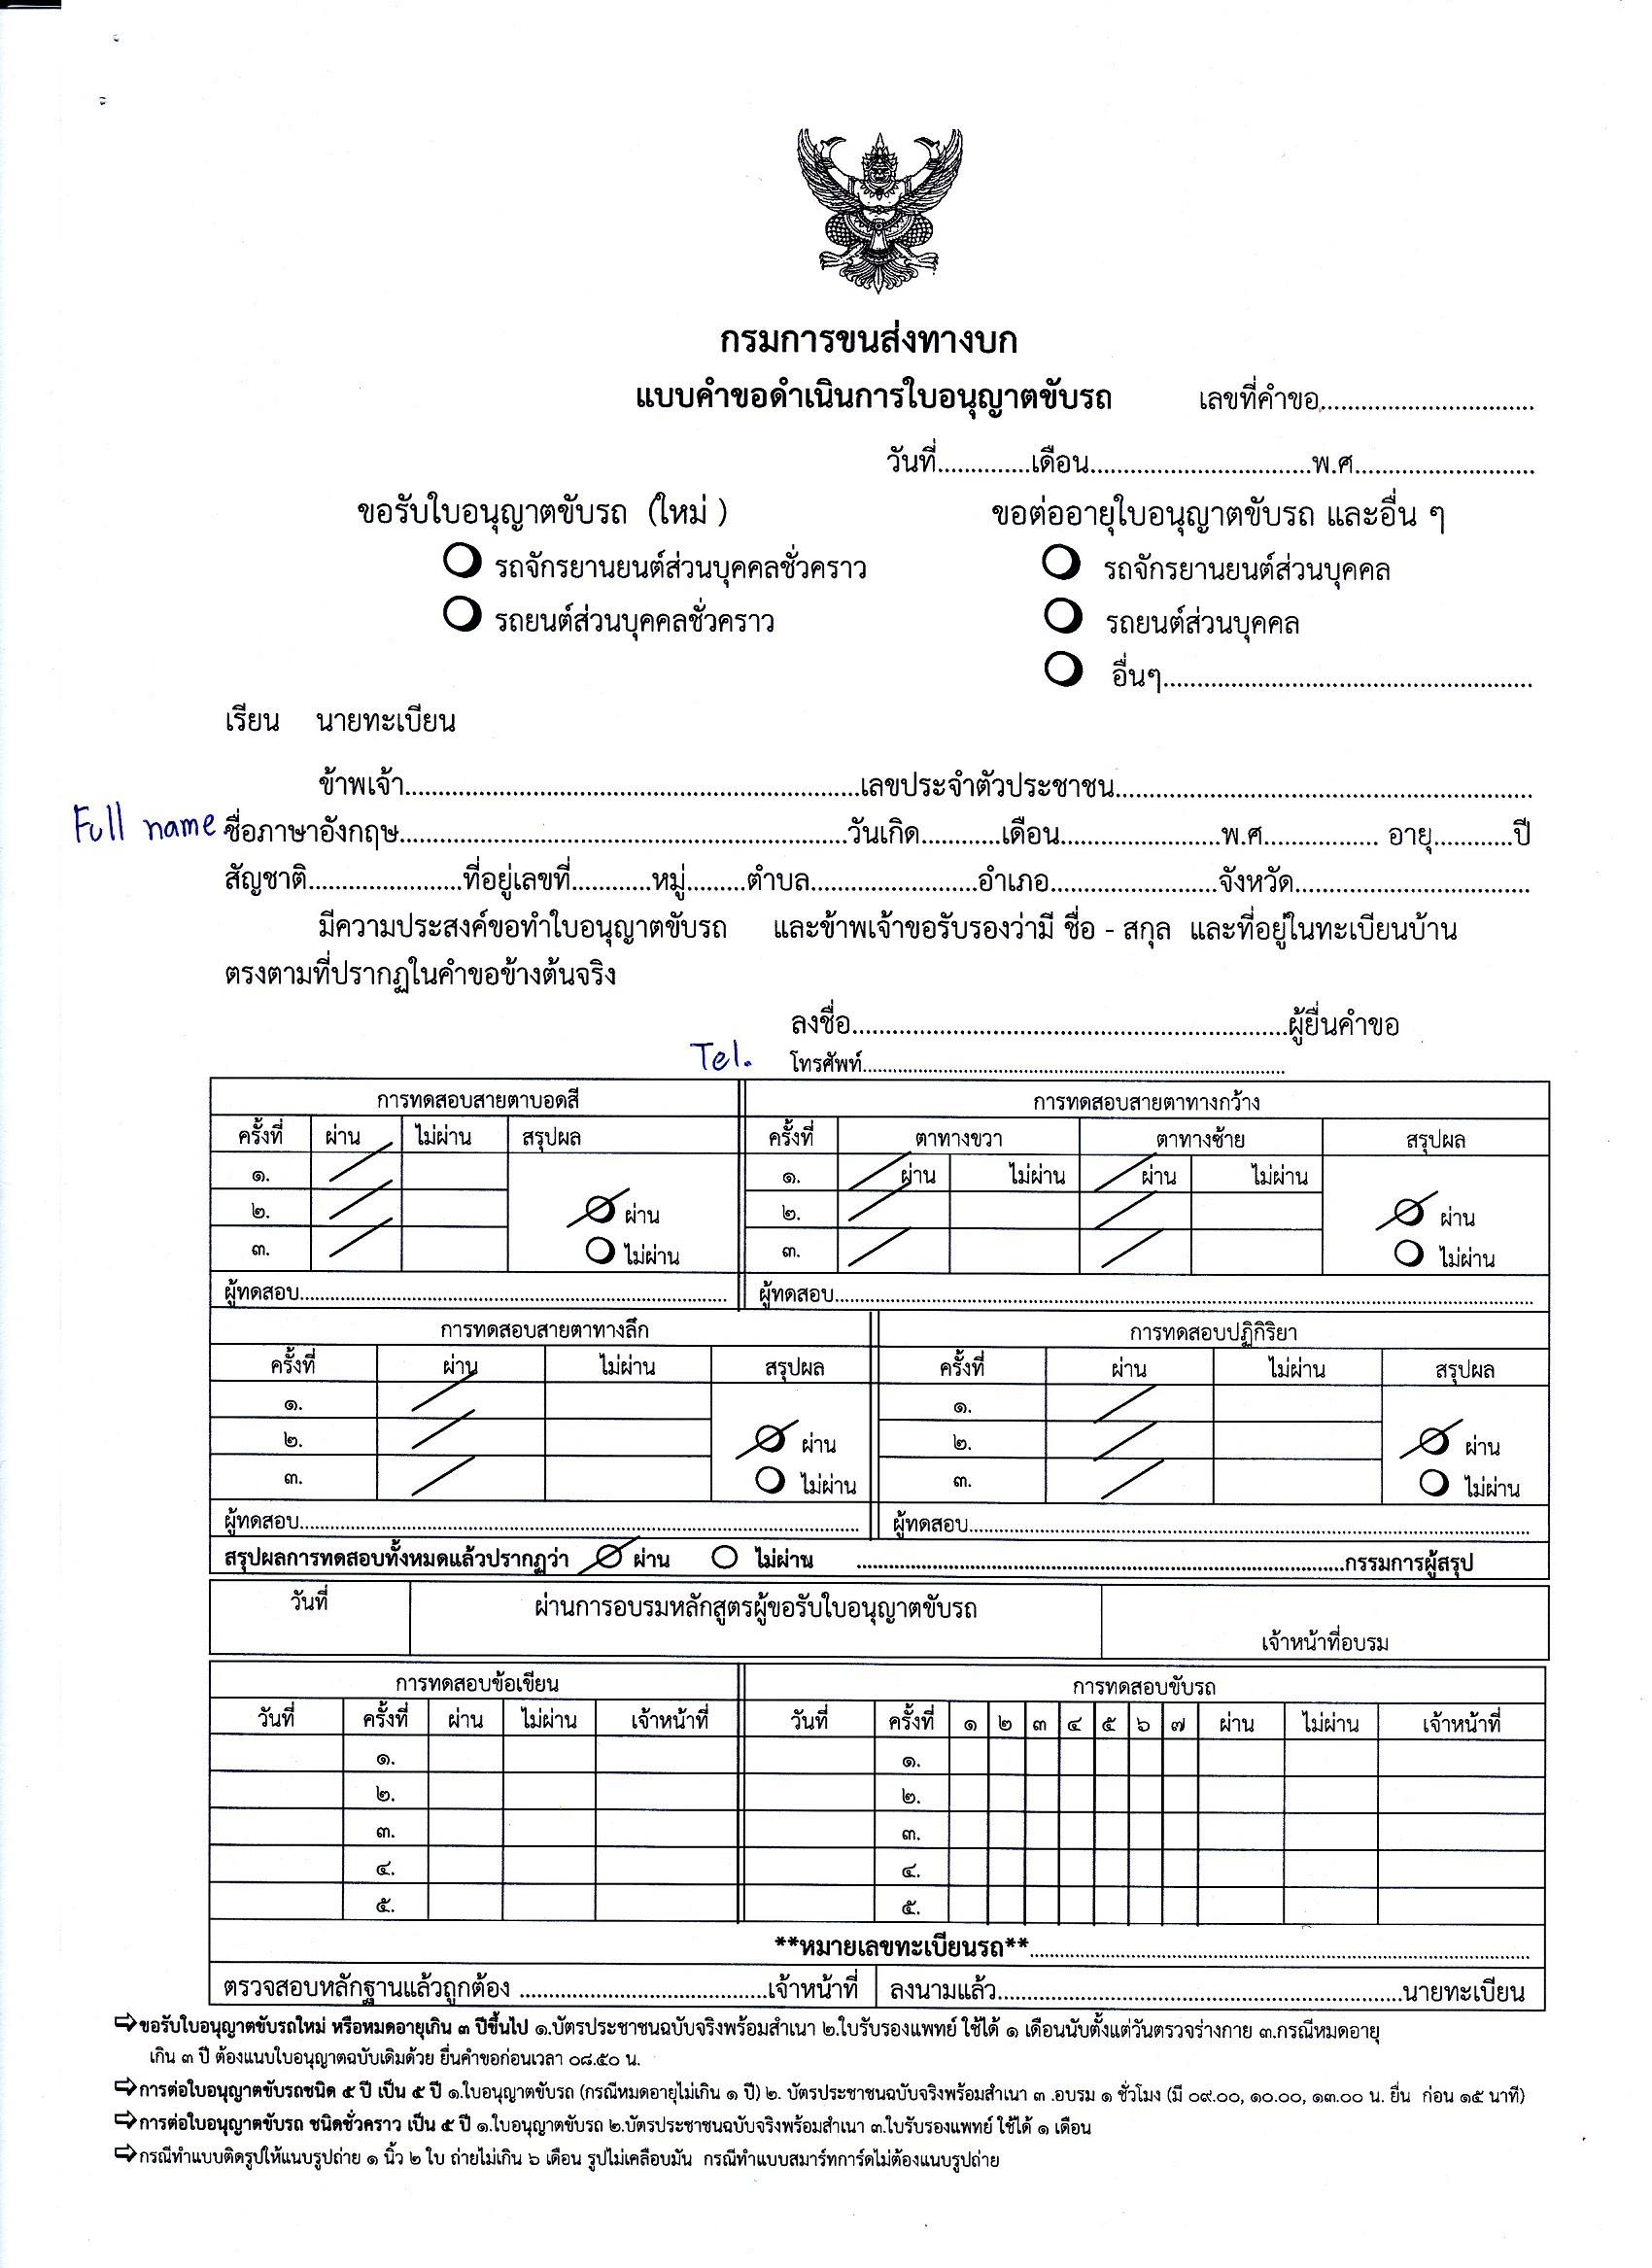 กรมการขนส่งทางบก
แบบคำขอดำเนินการใบอนุญาตขับรถ เลขที่คำขอ..............................
วันที่..............เดือน..............................พ.ศ..........................
ขอรับใบอนุญาตขับรถ (ใหม่ ) ขอต่ออายุใบอนุญาตขับรถ และอื่น ๆ
รถจักรยานยนต์ส่วนบุคคลชั่วคราว รถจักรยานยนต์ส่วนบุคคล
รถยนต์ส่วนบุคคลชั่วคราว รถยนต์ส่วนบุคคล
อื่นๆ..................................................
เรียน นายทะเบียน
ข้าพเจ้า..................................................เลขประจำตัวประชาชน..................................................
Full name ชื่อภาษาอังกฤษ..................................................วันเกิด............เดือน........................พ.ศ................. อายุ............ปี
สัญชาติ.......................ที่อยู่เลขที่............หมู่.........ตำบล.........................อำเภอ.........................จังหวัด...................................
มีความประสงค์ขอทำใบอนุญาตขับรถ และข้าพเจ้าขอรับรองว่ามี ชื่อ - สกุล และที่อยู่ในทะเบียนบ้าน
ตรงตามที่ปรากฏในคำขอข้างต้นจริง
ลงชื่อ..................................................ผู้ยื่นคำขอ
Tel. โทรศัพท์..................................................
การทดสอบสายตาบอดสี การทดสอบสายตาทางกว้าง
ครั้งที่ ผ่าน ไม่ผ่าน สรุปผล ครั้งที่ ตาทางขวา ตาทางซ้าย สรุปผล
๑. ๑. ผ่าน ไม่ผ่าน ผ่าน ไม่ผ่าน
๒. ผ่าน ๒. ผ่าน
๓. ไม่ผ่าน ๓. ไม่ผ่าน
ผู้ทดสอบ.................................................. ผู้ทดสอบ..................................................
การทดสอบสายตาทางลึก การทดสอบปฏิกิริยา
ครั้งที่ ผ่าน ไม่ผ่าน สรุปผล ครั้งที่ ผ่าน ไม่ผ่าน สรุปผล
๑. ๑.
๒. ผ่าน ๒. ผ่าน
๓. ไม่ผ่าน ๓. ไม่ผ่าน
ผู้ทดสอบ.................................................. ผู้ทดสอบ..................................................
สรุปผลการทดสอบทั้งหมดแล้วปรากฏว่า ผ่าน ไม่ผ่าน ..................................................กรรมการผู้สรุป
วันที่ ผ่านการอบรมหลักสูตรผู้ขอรับใบอนุญาตขับรถ
เจ้าหน้าที่อบรม
การทดสอบข้อเขียน การทดสอบขับรถ
วันที่ ครั้งที่ ผ่าน ไม่ผ่าน เจ้าหน้าที่ วันที่ ครั้งที่ ๑ ๒ ๓ ๔ ๕ ๖ ๗ ผ่าน ไม่ผ่าน เจ้าหน้าที่
๑. ๑.
๒. ๒.
๓. ๓.
๔. ๔.
๕. ๕.
**หมายเลขทะเบียนรถ**..................................................
ตรวจสอบหลักฐานแล้วถูกต้อง ...................................เจ้าหน้าที่ ลงนามแล้ว..................................................นายทะเบียน
➪ขอรับใบอนุญาตขับรถใหม่ หรือหมดอายุเกิน ๓ ปีขึ้นไป ๑.บัตรประชาชนฉบับจริงพร้อมสำเนา ๒.ใบรับรองแพทย์ ใช้ได้ ๑ เดือนนับตั้งแต่วันตรวจร่างกาย ๓.กรณีหมดอายุ
เกิน ๓ ปี ต้องแนบใบอนุญาตฉบับเดิมด้วย ยื่นคำขอก่อนเวลา ๐๘.๕๐ น.
➪การต่อใบอนุญาตขับรถชนิด ๕ ปี เป็น ๕ ปี ๑.ใบอนุญาตขับรถ (กรณีหมดอายุไม่เกิน ๑ ปี) ๒. บัตรประชาชนฉบับจริงพร้อมสำเนา ๓ .อบรม ๑ ชั่วโมง (มี ๐๙.๐๐, ๑๐.๐๐, ๑๓.๐๐ น. ยื่น ก่อน ๑๕ นาที)
➪การต่อใบอนุญาตขับรถ ชนิดชั่วคราว เป็น ๕ ปี ๑.ใบอนุญาตขับรถ ๒.บัตรประชาชนฉบับจริงพร้อมสำเนา ๓.ใบรับรองแพทย์ ใช้ได้ ๑ เดือน
➪กรณีทำแบบติดรูปให้แนบรูปถ่าย ๑ นิ้ว ๒ ใบ ถ่ายไม่เกิน ๖ เดือน รูปไม่เคลือบมัน กรณีทำแบบสมาร์ทการ์ดไม่ต้องแนบรูปถ่าย